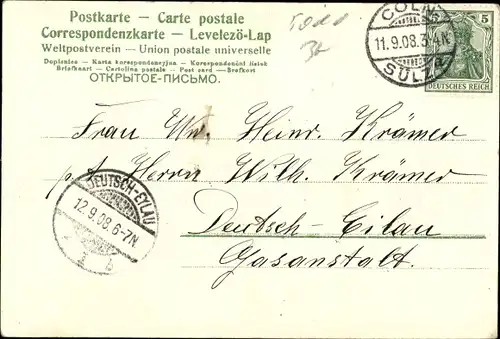 Postkarte – Carte postale
Correspondenzkarte – Levelező-Lap
Weltpostverein – Union postale universelle
Dopisnice – Karta korespondencyjna – Korespondenční lístek
Briefkaart – Cartolina postale – Post card – Brefkort
ОТКРЫТОЕ-ПИСЬМО.
CÖLN
11.9.08.3-4N
SÜLZ
5
DEUTSCHES REICH
Frau Ww. Heinr. Krämer
p. A. Herrn Wilh. Krämer
DEUTSCH-EYLAU
12.9.08.6-7N
Deutsch-Eilau
Gasanstalt.